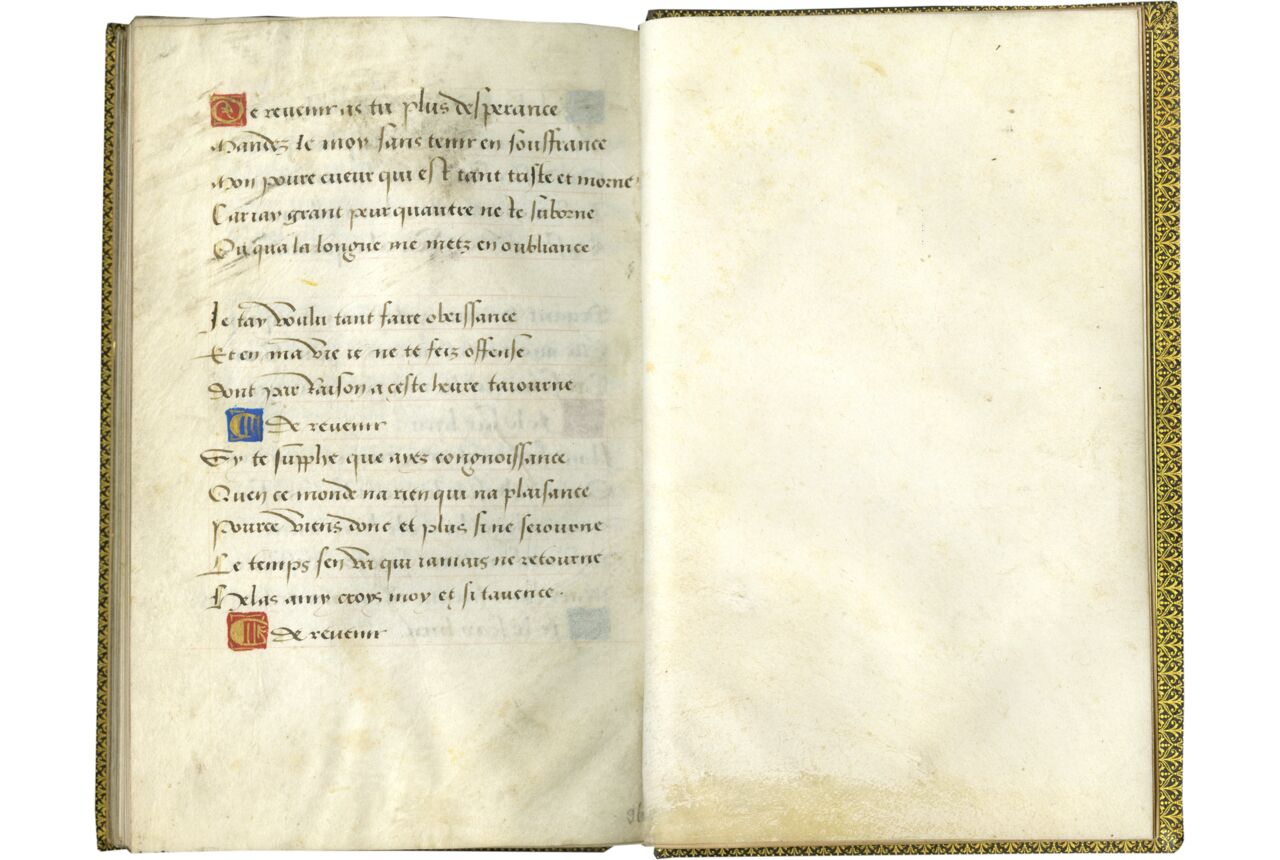 De revenir as tu plus desperance
Mandez le moy sans tenir en souffrance
Mon povre cueur qui est tant triste et morne
Car iay grant peur quautre ne te suborne
Ou qua la longue me metz en oubliance
Je tay voulu tant faire obeissance
Et en ma vie ie ne te feiz offense
Dont par raison a ceste heure taiourne
de revenir
Sy te supplie que ayes congnoissance
Quen ce monde na rien qui na plaisance
Pource viens donc et plus si ne seiourne
Le temps sen va qui iamais ne retourne
Helas amy croys moy et si tavence.
de revenir